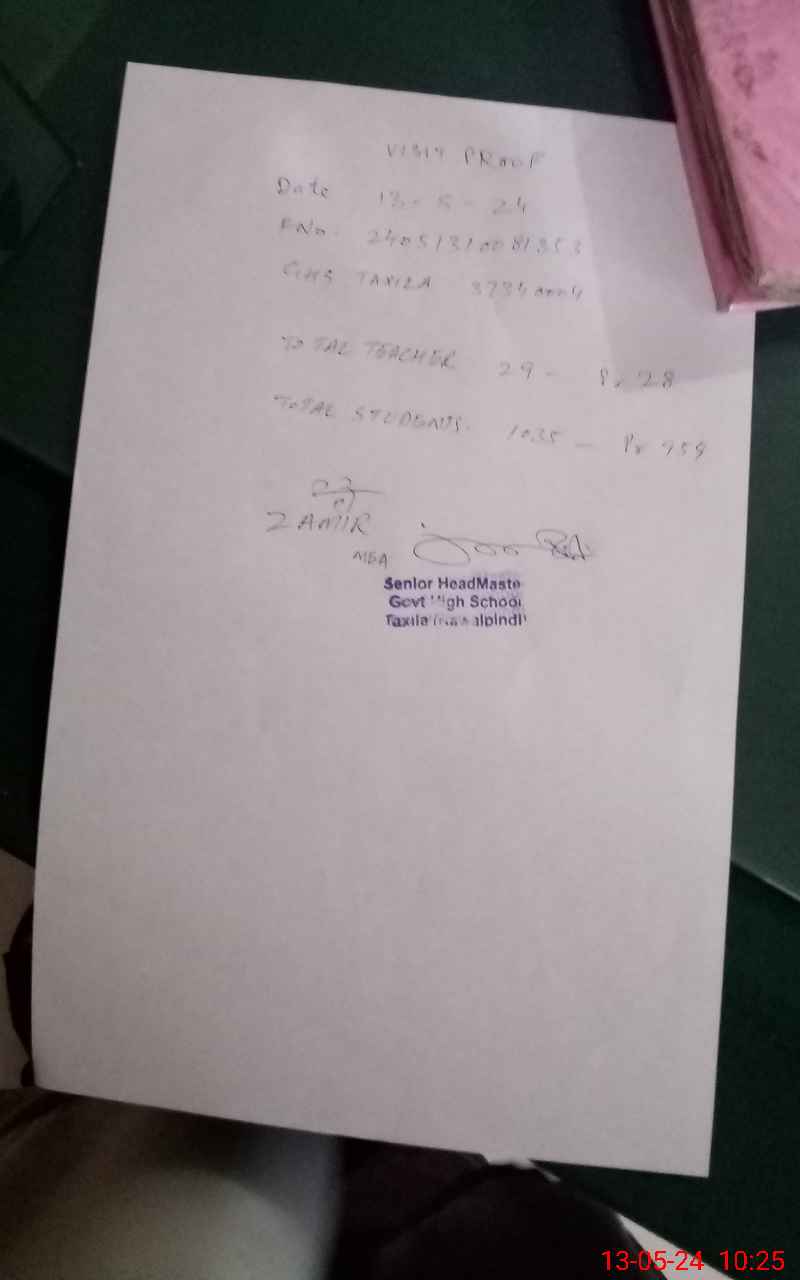 VISIT PROOF
Date 13-5-24
FNo. 24051310081353
GHS TAXILA 37340004
TOTAL TEACHER 29 - Pr 28
TOTAL STUDENTS. 1035 - Pr 959
ZAMIR
MEA
Senior HeadMaste
Govt High School
Taxila
13-05-24 10:25